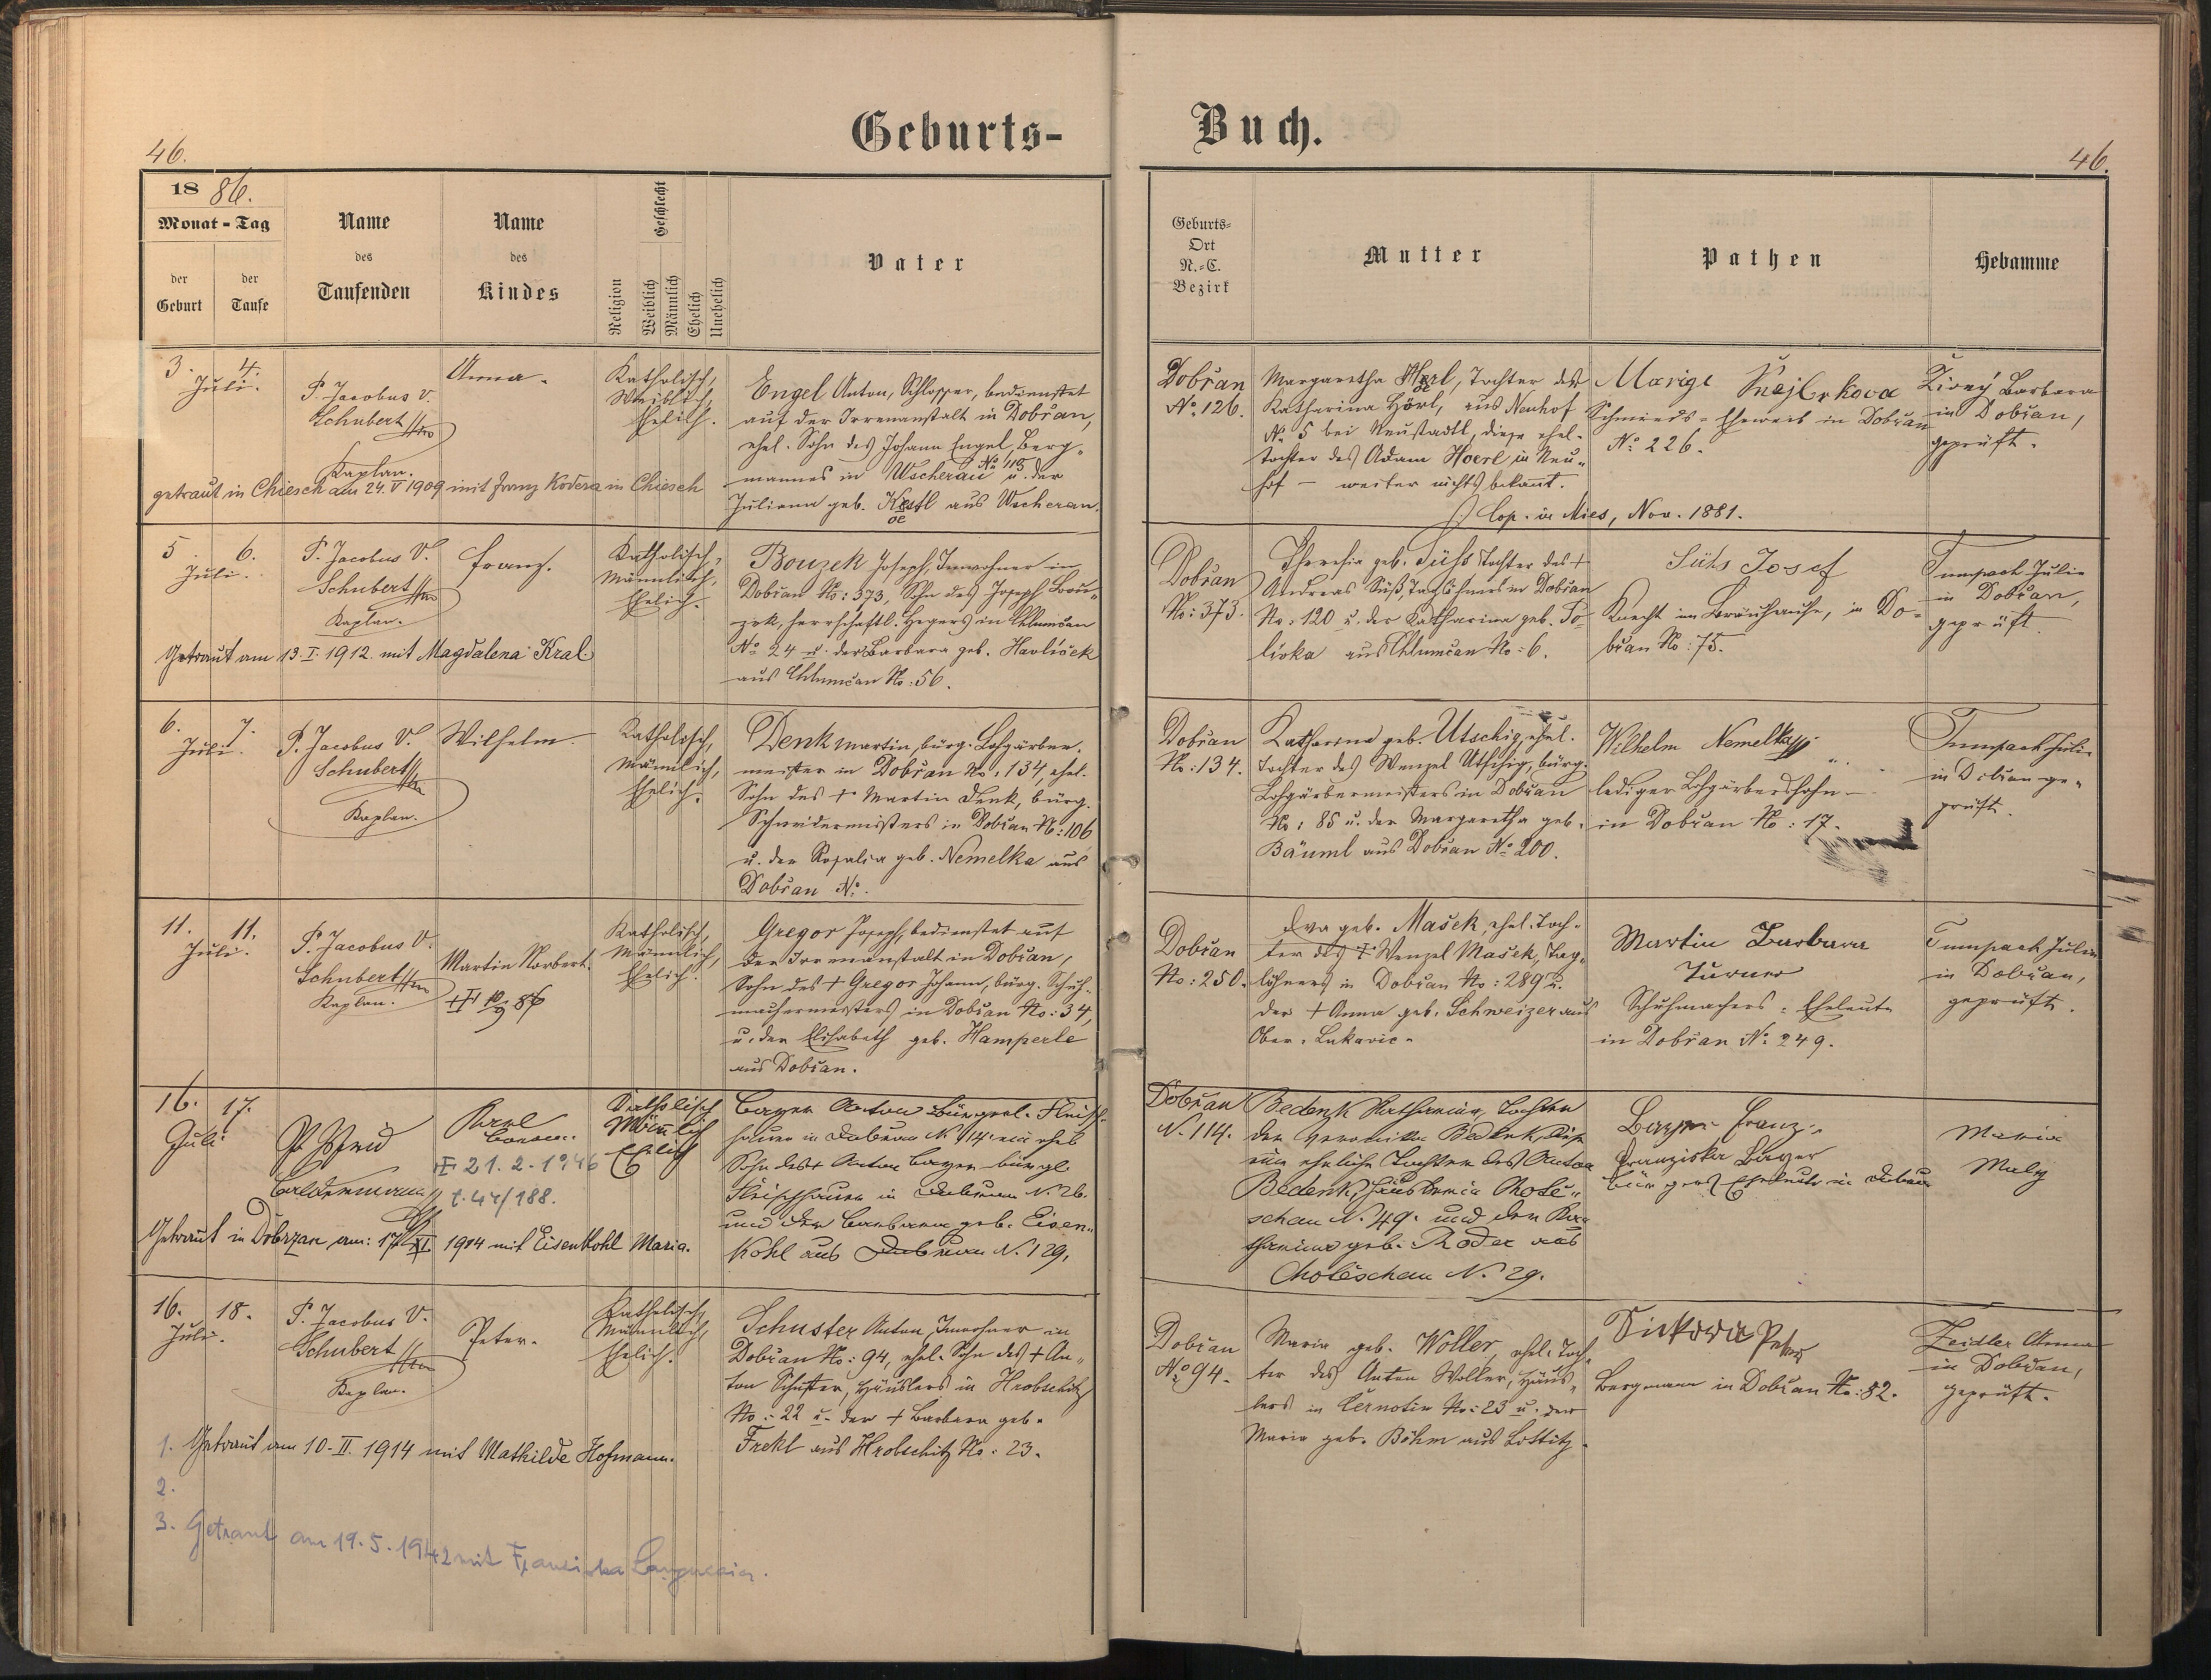 Geburts- Buch.
46.
46.
18 86.
Monat - Tag
der Geburt
der Taufe
Name des Taufenden
Name des Kindes
Religion
Geschlecht
Weiblich
Männlich
Ehelich
Unehelich
Vater
Geburts-Ort N.-C. Bezirk
Mutter
Pathen
Hebamme
3. 4.
Juli.
P. Jacobus V.
Schubert
Kaplan.
Anna.
Katholisch,
Weiblich,
Ehelich.
Engel Anton, Schlosser, bedienstet
auf der Irrenanstalt in Dobřan,
ehel. Sohn des Johann Engel, Berg-
mannes in Wscherau No 113 u. der
Juliana geb. Kestl aus Wscherau.
oe
getraut in Chiesch am 24. V 1909 mit Franz Kodera in Chiesch
Dobřan
No. 126.
Margaretha Herl, Tochter der
oe
Katharina Hörl, aus Neuhof
No 5 bei Neustadtl, diese ehel.
Tochter des Adam Hoerl, in Neu-
hof — weiter nichts bekannt.
Cop. in Mies, Nov. 1881.
Marige Šnajberkova
Schmieds-Eheweib in Dobřan
No. 226.
Živný Barbara
in Dobřan,
geprüft.
5. 6.
Juli.
P. Jacobus V.
Schubert
Kaplan.
Franz.
Katholisch,
Männlich,
Ehelich.
Bouzek Joseph, Inwohner in
Dobřan No: 373, Sohn des Joseph Bou-
zek, herrschaftl. Hegers in Chlumčan
No 24 u. der Barbara geb. Havliček
aus Chlumčan No. 56.
Getraut am 13. I. 1912. mit Magdalena Kral
Dobřan
No: 373.
Theresia geb. Sühs Tochter des +
Andreas Süß, Taglöhners in Dobřan
No: 120 u. der Katharina geb. To-
livka aus Chlumčan No: 6.
Sühs Josef
Knecht im Bräuhause, in Do-
břan No: 75.
Tumpach Julie
in Dobřan,
geprüft.
6. 7.
Juli.
P. Jacobus V.
Schubert
Kaplan.
Wilhelm.
Katholisch,
Männlich,
Ehelich.
Denk Martin, bürg. Lohgärber-
meister in Dobřan No: 134, ehel.
Sohn des + Martin Denk, bürg.
Schneidermeisters in Dobřan No: 106
u. der Rosalia geb. Nemelka aus
Dobřan No.
Dobřan
No: 134.
Katharina geb. Utschig, ehel.
Tochter des Wenzel Utschig, bürg.
Lohgärbermeisters in Dobřan
No: 85 u. der Margaretha geb.
Bäuml aus Dobřan No 200.
Wilhelm Nemelka
lediger Lohgärberssohn
in Dobřan No: 17.
Tumpach Juli
in Dobřan ge-
prüft.
11. 11.
Juli.
P. Jacobus V.
Schubert
Kaplan.
Martin Norbert.
Katholisch,
Männlich,
Ehelich.
Gregor Joseph, bedienstet auf
der Irrenanstalt in Dobřan,
Sohn des + Gregor Johann, bürg. Schuh-
machermeisters in Dobřan No: 34,
u. der Elisabeth geb. Hamperle
aus Dobřan.
Dobřan
No: 250.
Eva geb. Mašek, ehel. Toch-
ter des + Wenzel Mašek, Tag-
löhners in Dobřan No: 289 u.
der + Anna geb. Schweizer aus
Ober-Lukavic.
Martin Barbara
Turner
Schuhmachers-Eheleute
in Dobřan No: 249.
Tumpach Julie
in Dobřan,
geprüft.
16. 17.
Juli
Karl
21. 2. 1946
t. 44/188.
Katholisch
Männlich
Ehelich
Bayer Anton bürgerl. Fleisch-
hauer in Dobřan N. 114. ein ehel
Sohn des + Anton Bayer bürgl.
Fleischhauer in Dobřan N. 26.
und der Barbara geb. Eisen-
kohl aus Dobřan N. 129.
Getraut in Dobrzan am: 17. XI. 1914 mit Eisenkohl Maria.
Dobřan
N. 114.
Bedenk Katharina, Tochter
der Veronika Bedenk, diese
eine eheliche Tochter des Anton
Bedenk, Häusler in Chote-
schau N. 49. und der Ka-
tharina geb. Roder aus
Choteschau N. 29.
Bayer Franz
Franziska Bayer
bürgerl. Eheleute in Dobřan
Maria
Maly
16. 18.
Juli.
P. Jacobus V.
Schubert
Kaplan.
Peter.
Katholisch,
Männlich,
Ehelich.
Schuster Anton, Inwohner in
Dobřan No: 94, ehel. Sohn des + An-
ton Schuster, Häuslers in Hrobschitz
No: 22 u. der + Barbara geb.
Frekl aus Hrobschitz No: 23.
1. Getraut am 10. II. 1914 mit Mathilde Hofmann.
2.
3. Getraut am 19. 5. 1942 mit Franziska
Dobřan
No 94.
Maria geb. Woller, ehel. Toch-
ter des Anton Woller, Häus-
lers in Černotin No: 23 u. der
Maria geb. Böhm aus Lottitz.
Peter
Bergmann in Dobřan No: 82.
Zeidler Anna
in Dobřan,
geprüft.